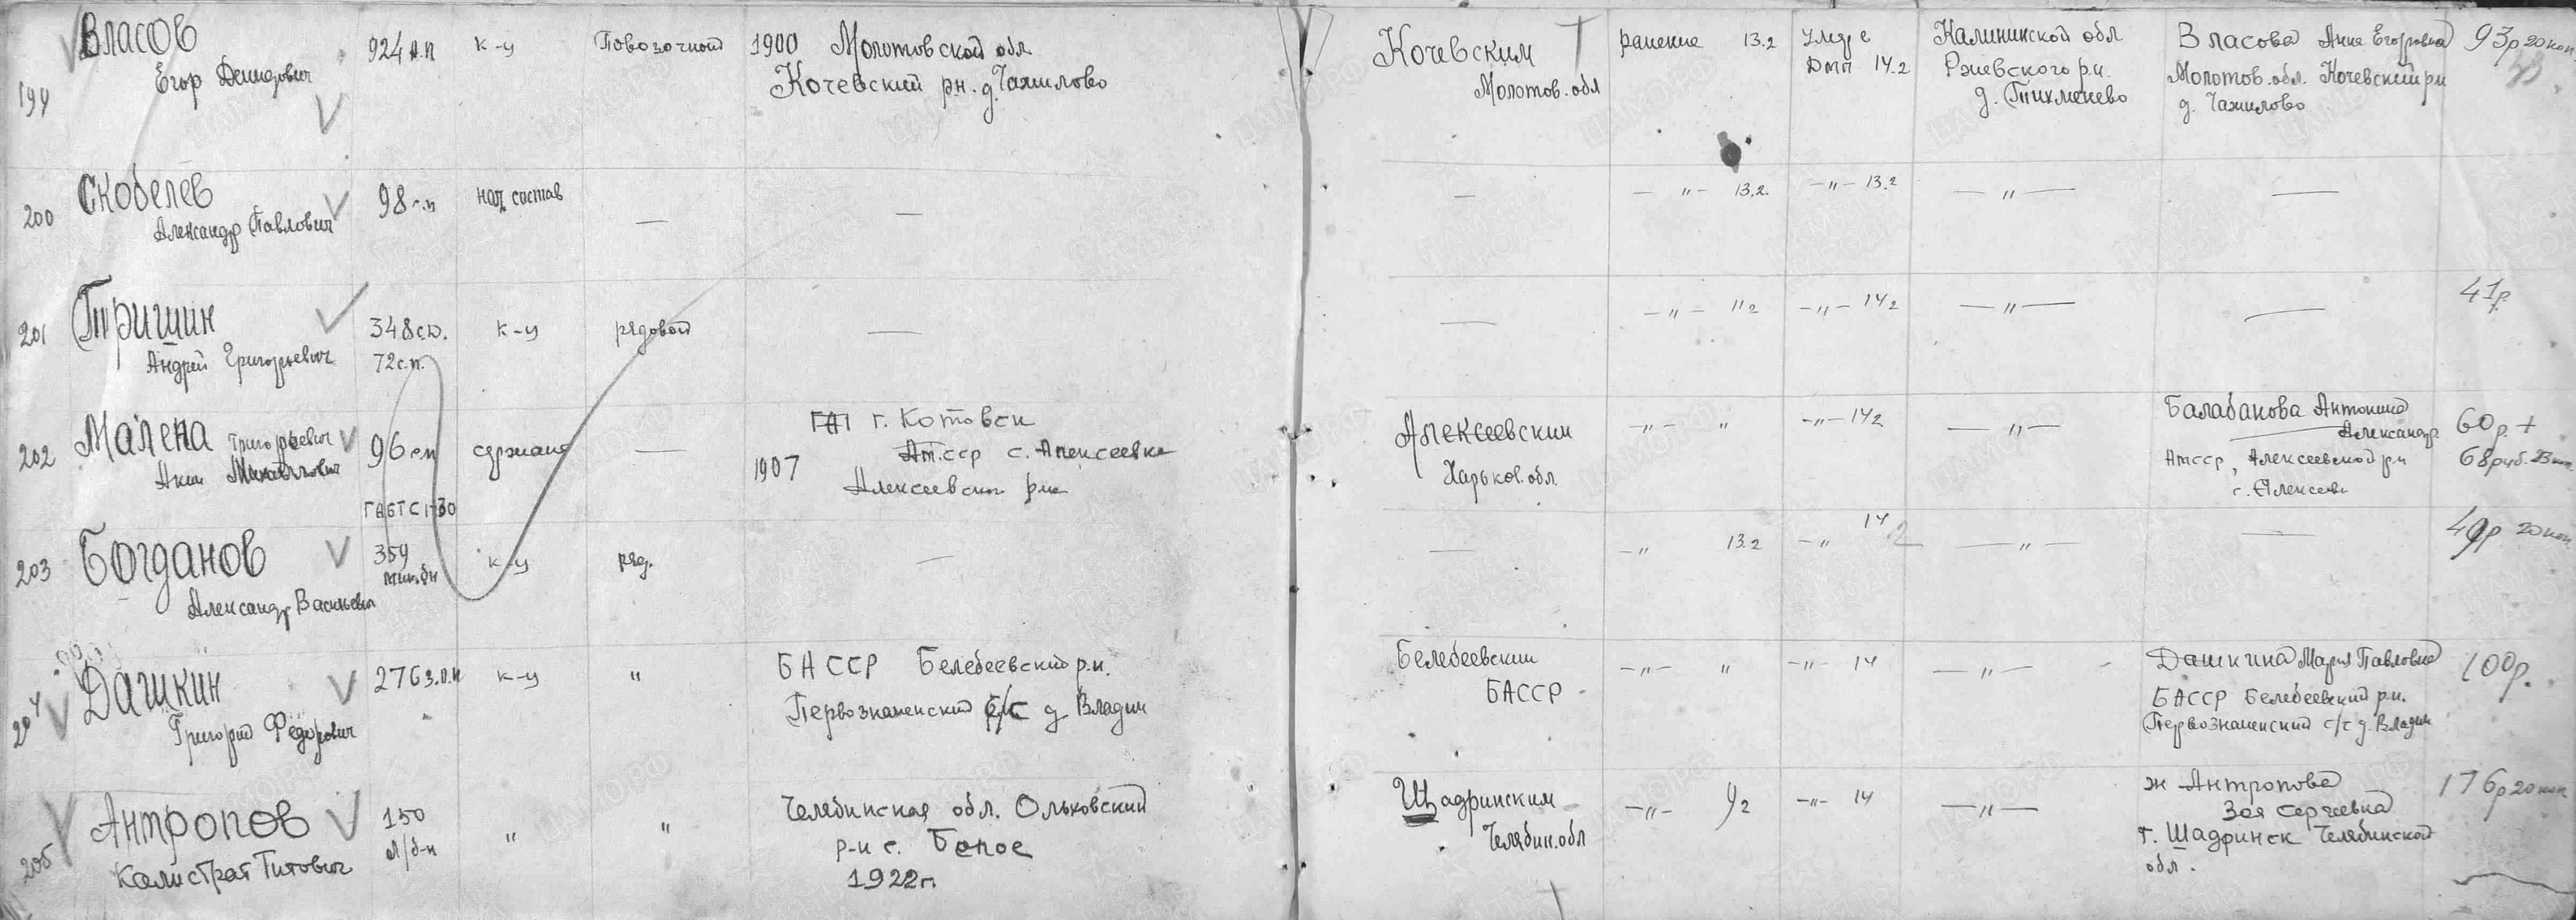 199 Власов 924 а.п к-у Повозочной 1900 Молотовской обл. Кочевским ранение 13.2 умер в Калининской обл Власова Анна Егоровна 93р 20 коп
Егор Демидович Кочевский р.н. д. Чажилово Молотов. обл ДМП 14.2 Ржевского р.н. Молотов. обл. Кочевский рн
д. Тикменево д. Чажилово
200 Скобелев 98 с.п нач состав — — — —„— 13.2. —„— 13.2 —„— —
Александр Павлович
201 Тришин 348 с.д. к-у рядовой — — —„— 11 2 —„— 14 2 —„— — 41р.
Андрей Григорьевич 72 с.п.
202 Малена Григорьевич 96 сп сержант — г. Котовск Алексеевским —„— „ —„— 14 2 —„— Балабанова Антонина 60р. +
Аким 1907 Ам.сср с. Алексеевка Харьков. обл. Александр. 68 руб. 23 коп.
Алексеевского р-на Амсср, Алексеевской рн
с. Алексеев
ГАБТС 1-30
203 Богданов 359 к-у ряд. — — —„ 13.2 —„ 14 2 —„— — 49р 20 коп
Александр Васильевич мин. бн
204 Дашкин 276 з.п.п к-у „ БАССР Белебеевский р.н. Белебеевским —„— „ —„— 14 —„— Дашкина Мария Павловна 100р.
Григорий Федорович Первознаменский с/с д Владим БАССР БАССР Белебеевский р.н.
Первознаменский с/с д. Владим
205 Антропов 150 „ „ Челябинская обл. Ольховский Шадринским —„— 9 2 —„— 14 —„— ж Антропова 176р 20 коп
Калистрат Титович л/б-н р-н с. Белое Челябин. обл Зоя Сергеевна
1922 г. г. Шадринск Челябинской
обл.